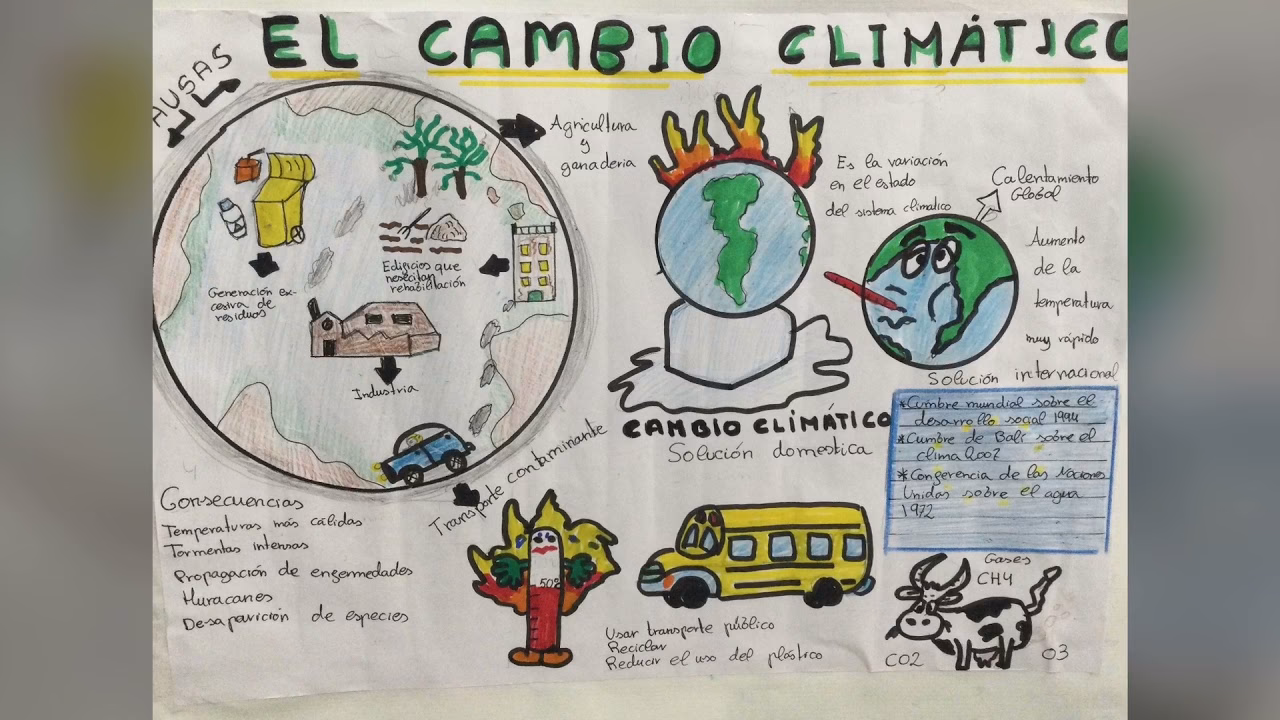 EL CAMBIO CLIMÁTICO
AUSAS
Agricultura
y
ganaderia
Generación ex-
cesiva de
residuos
Edificios que
nesecitan
rehabilitación
Industria
Transporte contaminante
Es la variación
en el estado
del sistema climatico
Calentamiento
Global
Aumento
de la
temperatura
muy rápido
CAMBIO CLÍMÁTICO
Solución domestica
Solución internacional
*Cumbre mundial sobre el
desarrollo social 1994
*Cumbre de Bali sobre el
clima 2007
*Congerencia de las Naciones
Unidas sobre el agua
1972
Consecuencias
Temperaturas más cálidas
Tormentas intensas
Propagación de engermedades
Huracanes
Desaparición de especies
50º
Usar transporte público
Reciclar
Reducir el uso del plástico
Gases
CH4
CO2
O3